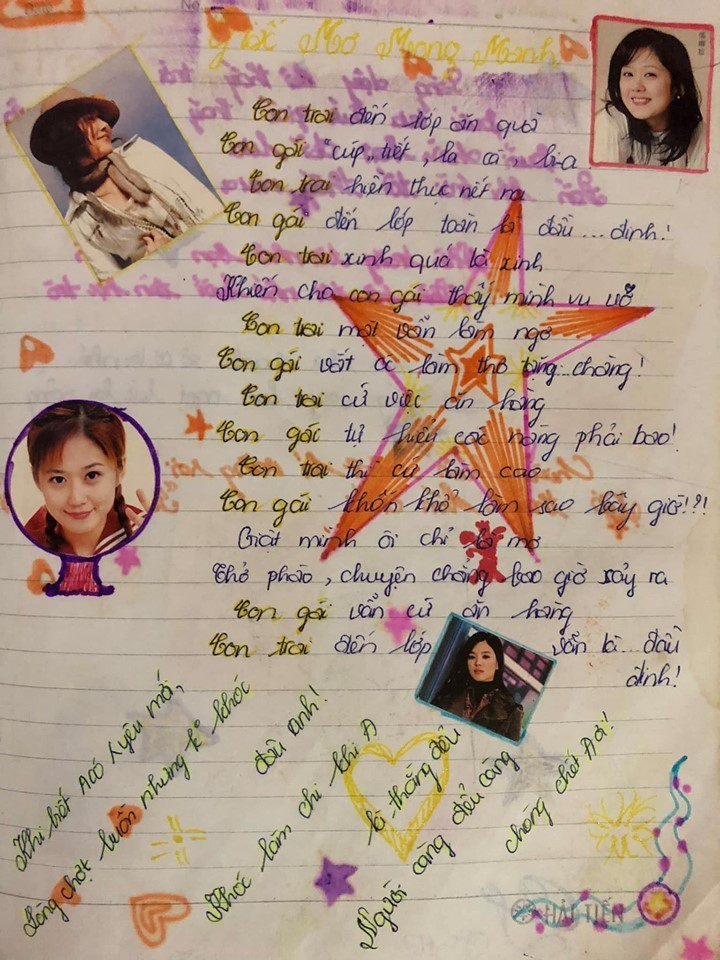 No
Giấc Mơ Mong Manh
Con trai đến lớp ăn quà
Con gái "cúp" tiết, la cà, bi-a
Con trai hiện thục nết na
Con gái đến lớp toàn là đầu... đinh!
Con trai xinh quá là xinh
Khiến cho con gái thấy mình vu vơ
Con trai mặt vẫn làm ngơ
Con gái vắt óc làm thơ tặng... chàng!
Con trai cứ việc ăn hàng
Con gái tự hiểu các nàng phải bao!
Con trai thì cứ làm cao
Con gái khốn khổ làm sao bây giờ!?!
Giật mình ôi chỉ là mơ
Thở phào, chuyện chẳng bao giờ xảy ra
Con gái vẫn cứ ăn hàng
Con trai đến lớp vẫn là... đầu
đinh!
Khi biết A có ny mới,
Lòng chợt buồn nhưng k khóc
đâu anh!
Khóc làm chi khi A
là thằng đểu
Người càng đểu càng
chóng chết A ơi!
HẢI TIẾN